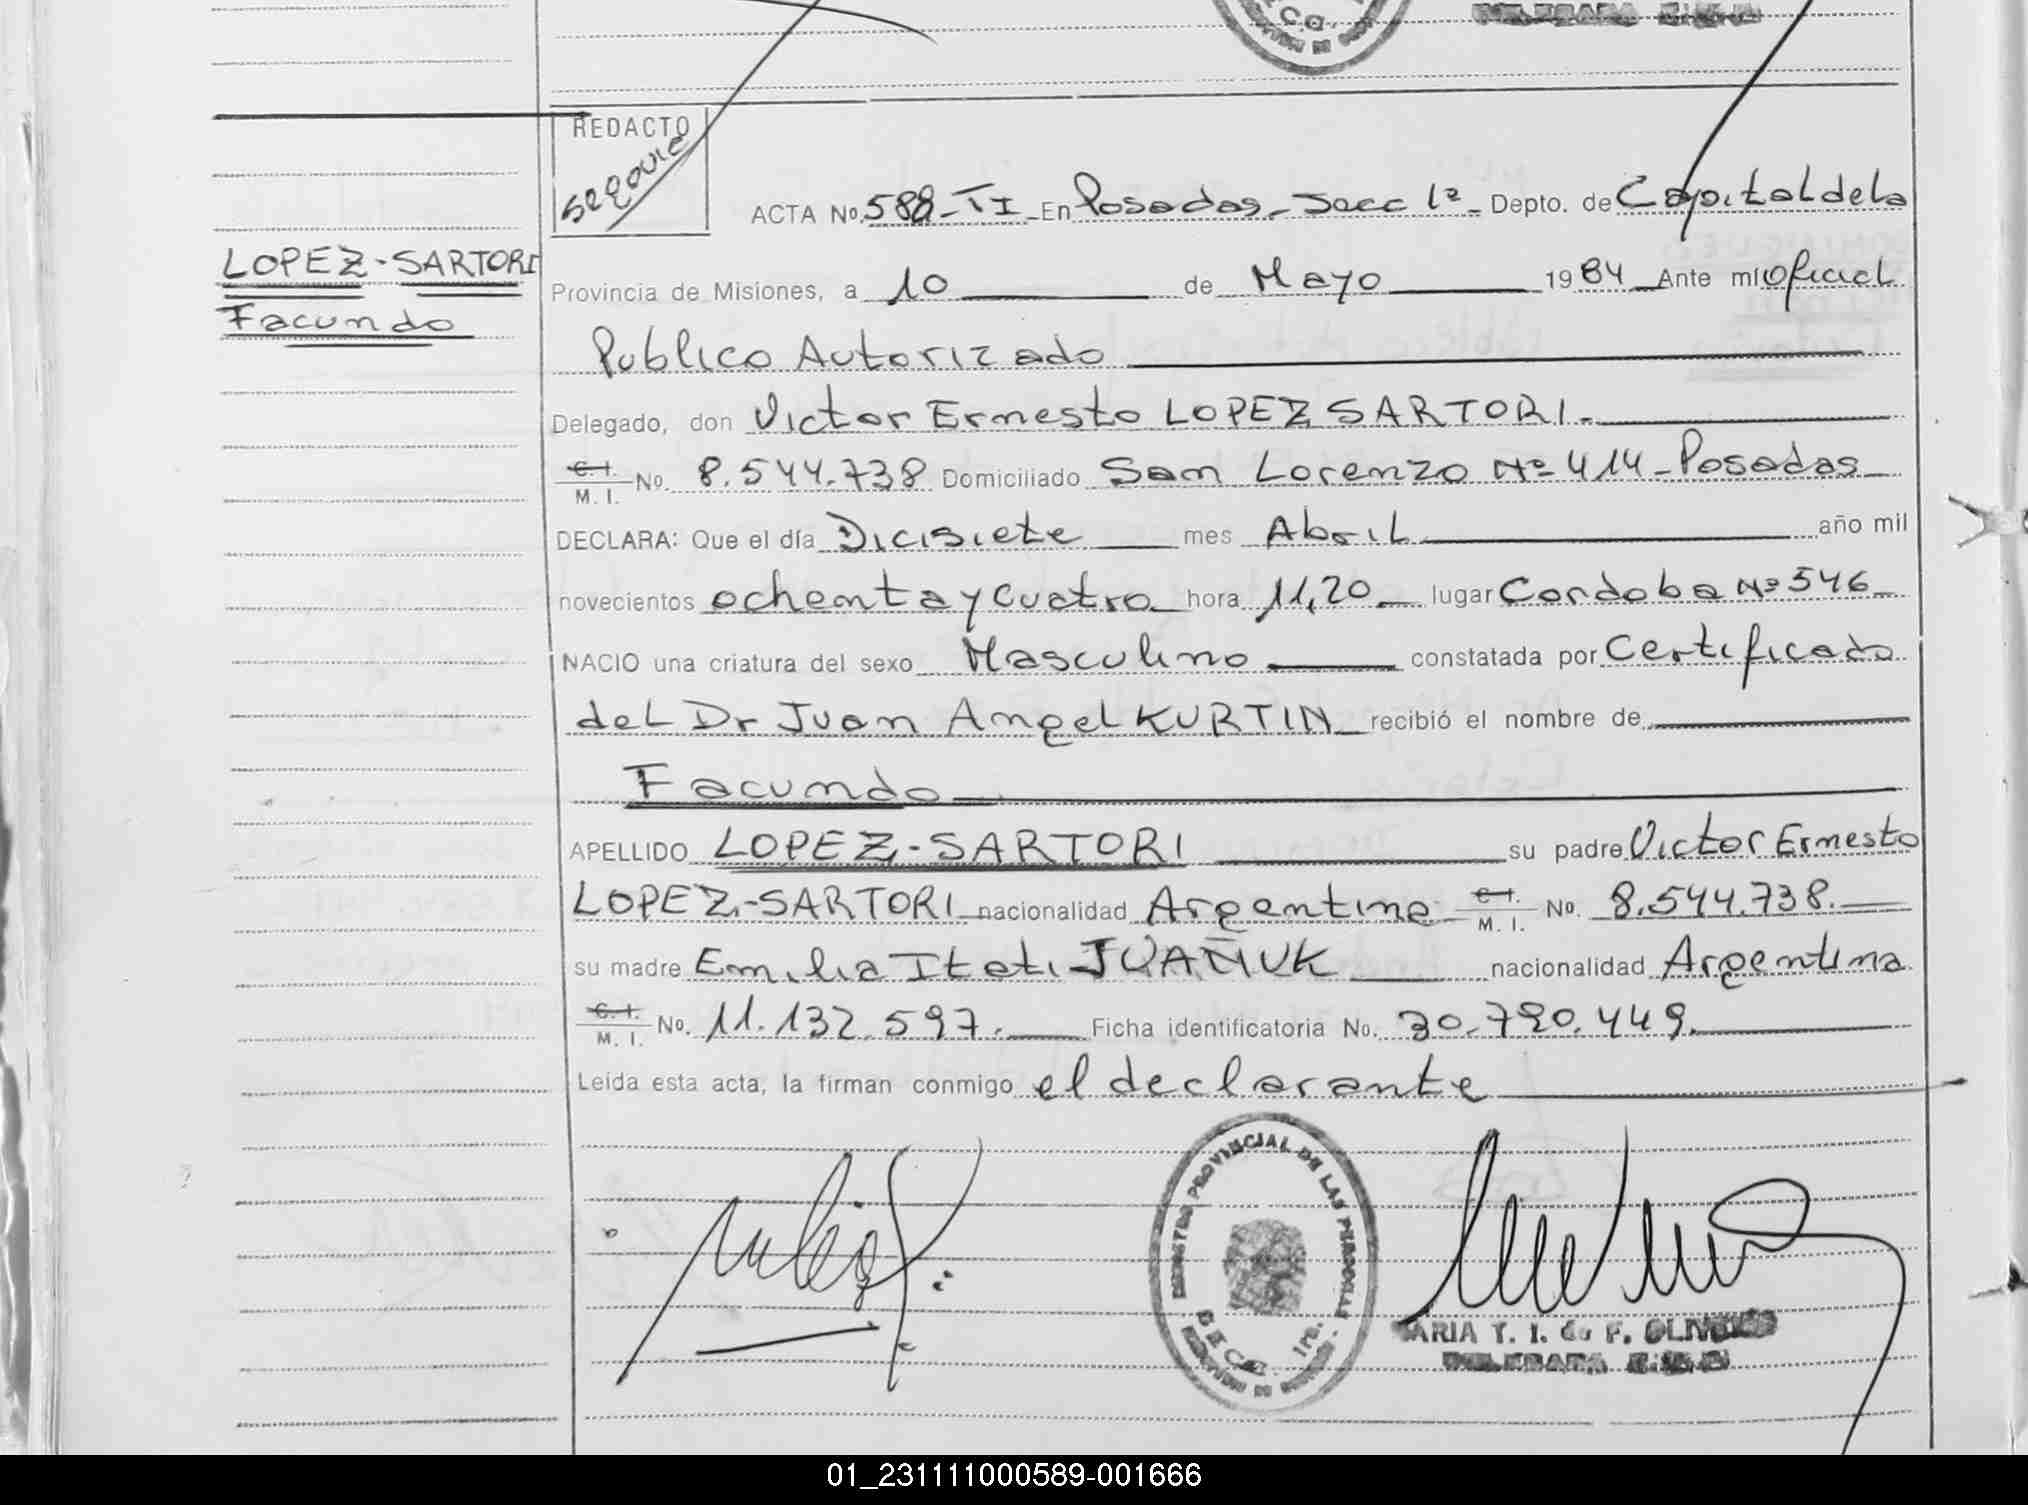 REDACTO
ACTA No. 588-TI En Posadas - Secc 1ª - Depto. de Capital de la
LOPEZ-SARTORI
Facundo
Provincia de Misiones, a 10 de Mayo 1984 Ante mí Oficial
Publico Autorizado
Delegado, don Victor Ernesto LOPEZ SARTORI.-
C. I.
M. I. No. 8.544.738 Domiciliado San Lorenzo Nº 414 - Posadas
DECLARA: Que el día Dicisiete mes Abril año mil
novecientos ochenta y cuatro hora 11,20 lugar Cordoba Nº 546
NACIO una criatura del sexo Masculino constatada por Certificado
del Dr Juan Angel KURTIN recibió el nombre de
Facundo
APELLIDO LOPEZ-SARTORI su padre Victor Ernesto
LOPEZ-SARTORI nacionalidad Argentina C. I. M. I. No. 8.544.738.
su madre Emilia Itati JUAÑUK nacionalidad Argentina
C. I.
M. I. No. 11.132.597. Ficha identificatoria No. 30.790.449.
Leída esta acta, la firman conmigo el declarante
REGISTRO PROVINCIAL DE LAS PERSONAS
MARIA T. I. de F. OLIVEIRO
01_231111000589-001666